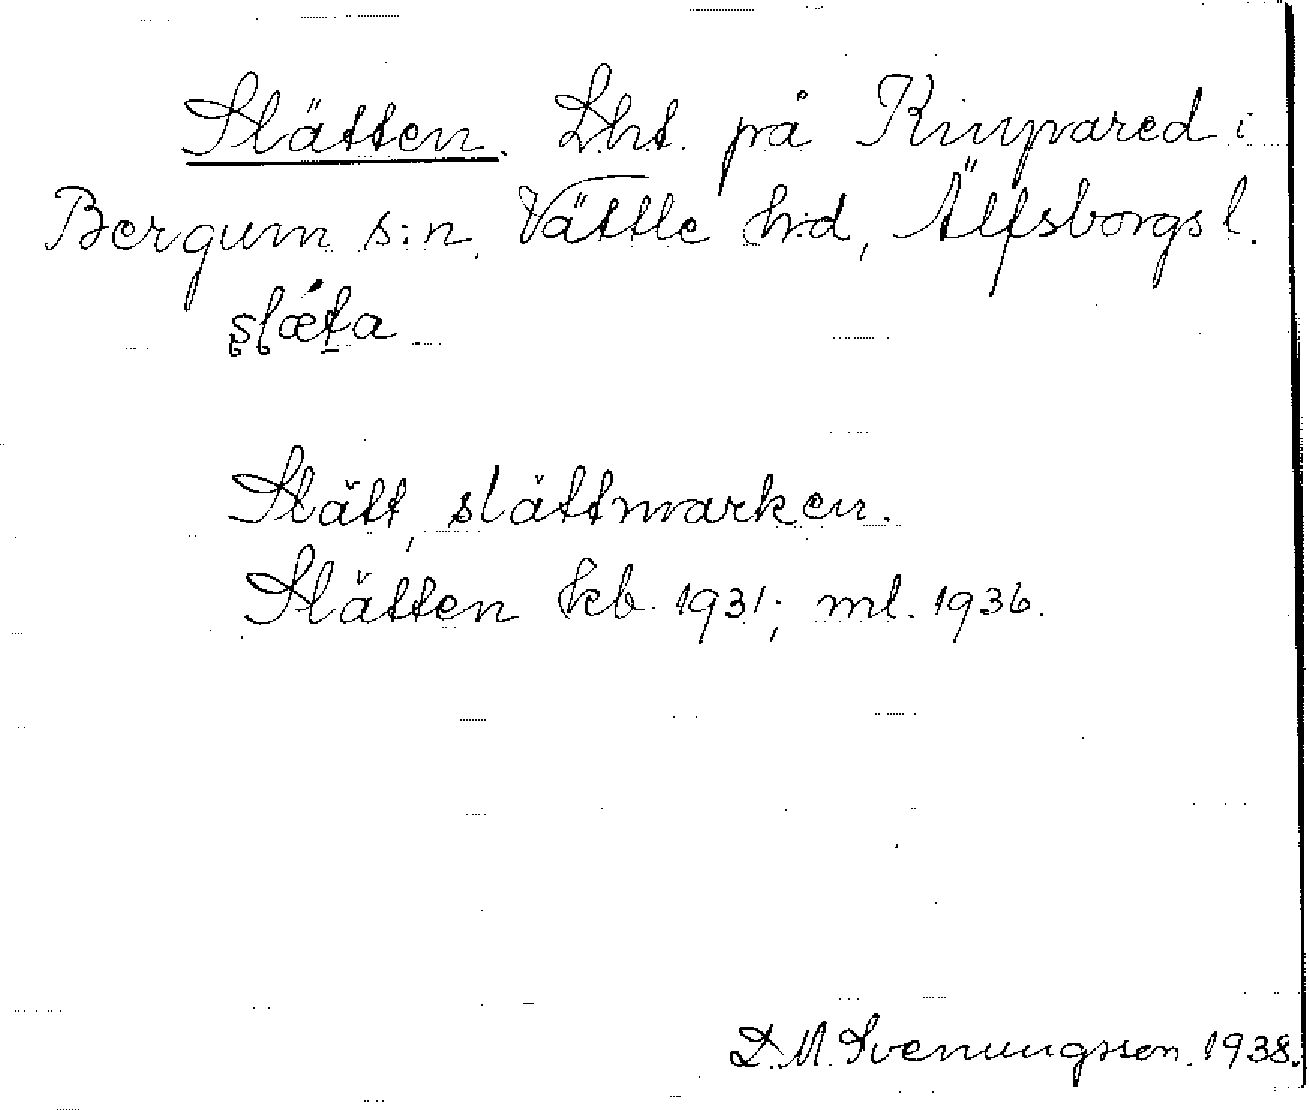 Slätten. Lht. på Knipared i
Bergum s:n, Vättle hd, Älfsborgs l.
slǽta
Slätt, slättmarken.
Slätten kb. 1931; ml. 1936.
D.M. Svenungsson. 1938.